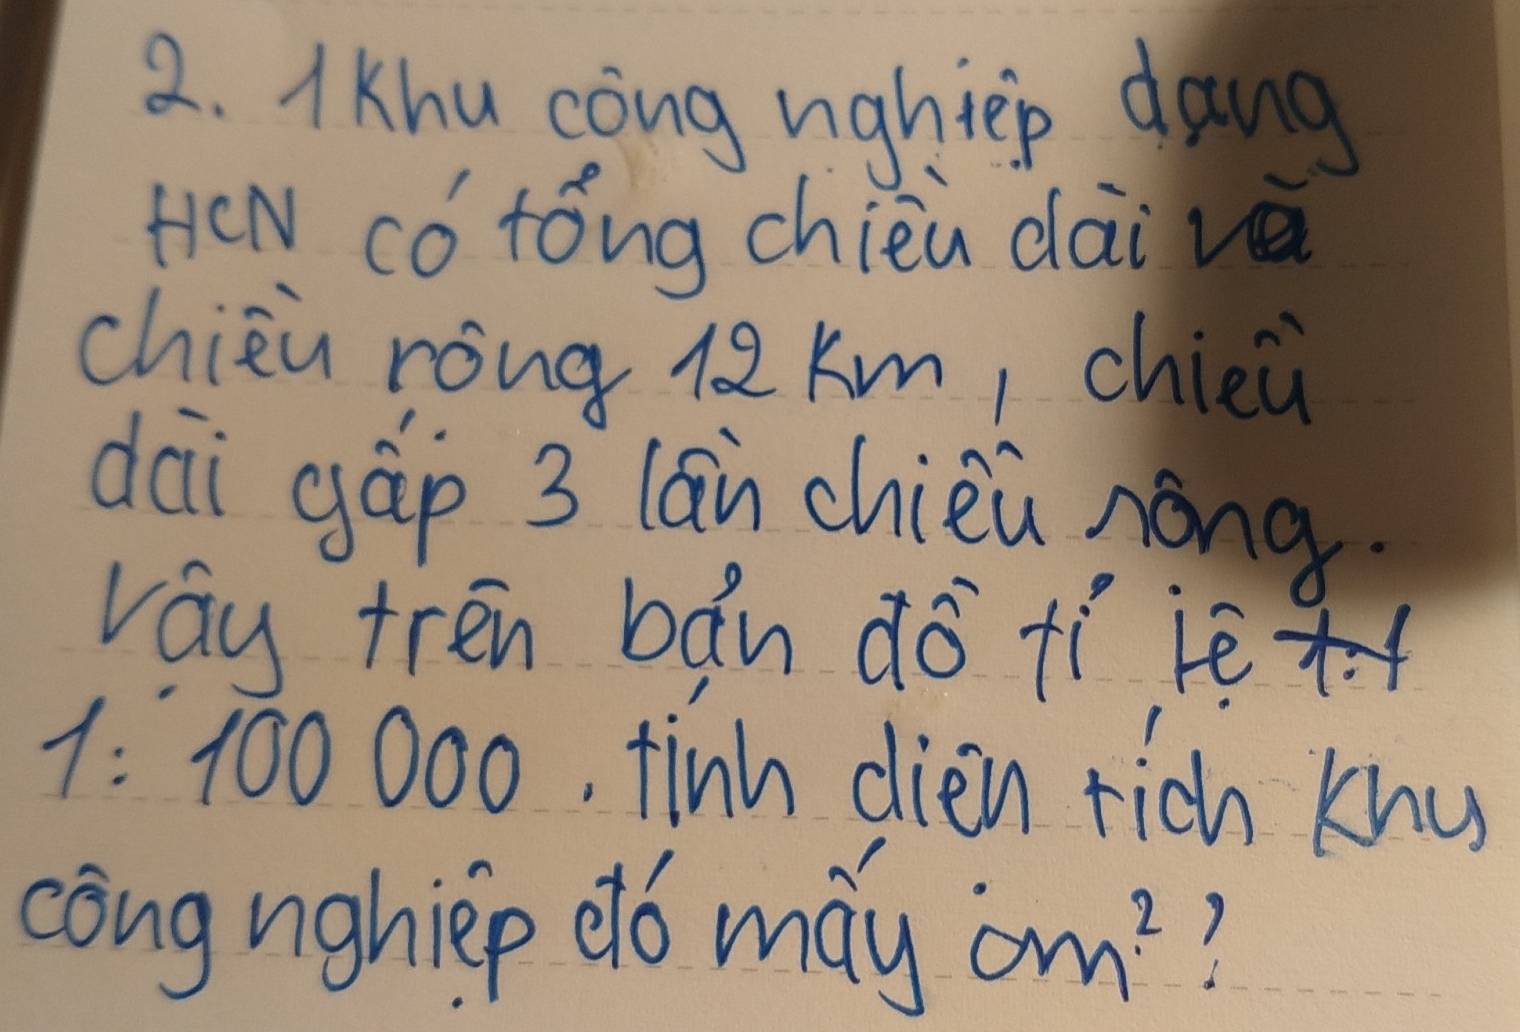 2. 1 khu công nghiệp dạng
HCN có tổng chiều dài và
chiều rộng 12 km, chiều
dài gấp 3 lần chiều rộng.
Vậy trên bản đồ tỉ lệ
1: 100 000. tính diện tích khu
công nghiệp đó mấy cm²?